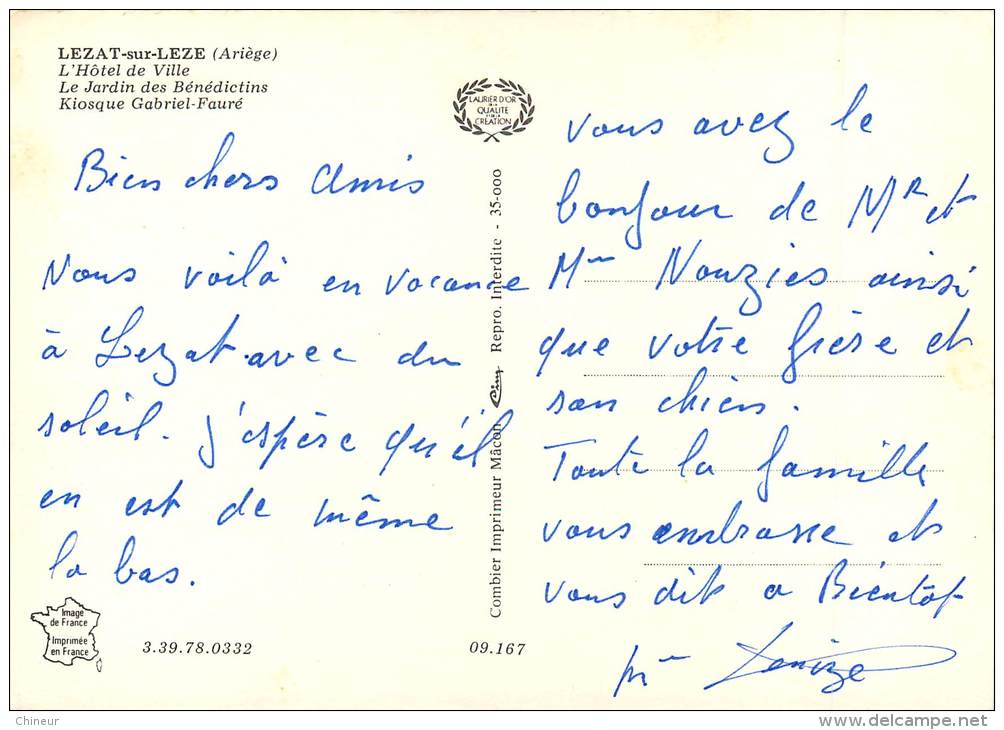 LEZAT-sur-LEZE (Ariège)
L'Hôtel de Ville
Le Jardin des Bénédictins
Kiosque Gabriel-Fauré
Bien chers Amis
Nous voilà en vacance
à Lezat avec du
soleil. J'espère qu'il
en est de même
la bas.
Image
de France
Imprimée
en France
3.39.78.0332
09.167
LAURIER D'OR
DE LA
QUALITE
ET DE LA
CREATION
Combier Imprimeur Mâcon Cim Repro. Interdite - 35-000
vous avez le
bonjour de Mr et
Mme Nouzies ainsi
que votre frère et
son chien.
Toute la famille
vous embrasse et
vous dit a Bientôt
Chineur
delcampe.net